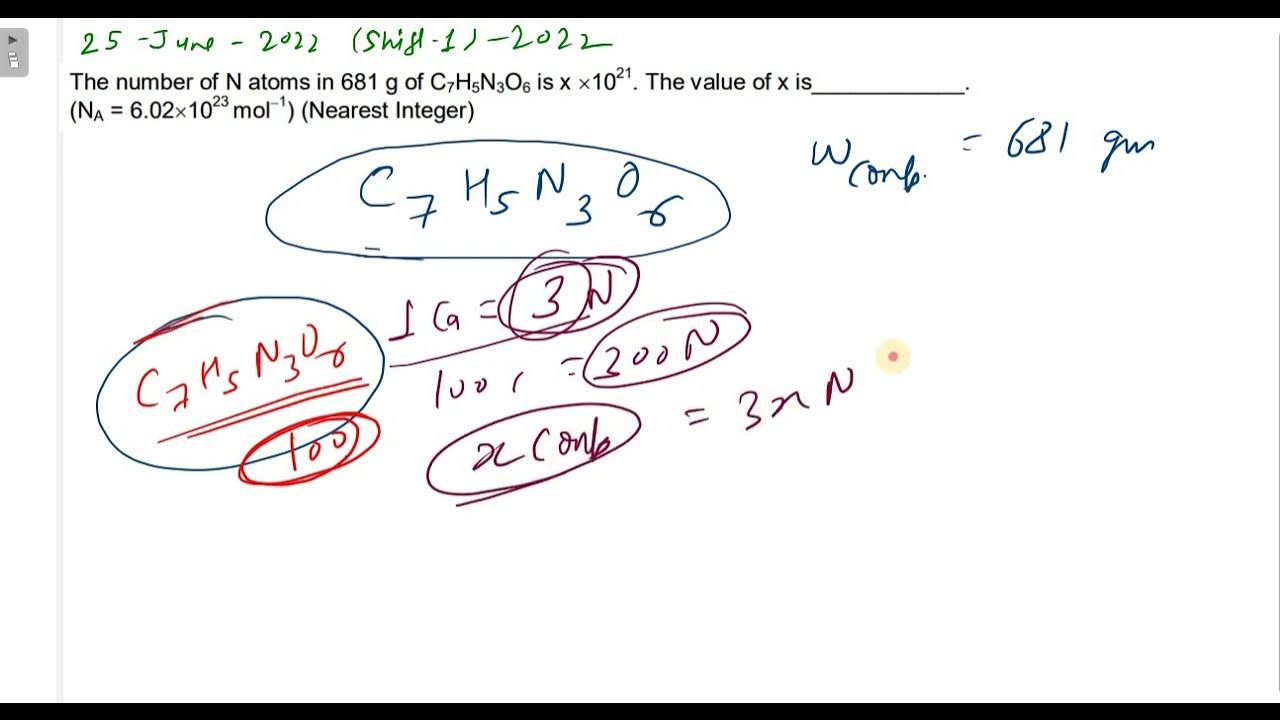 25 -June - 2022 (Shift-1) - 2022
The number of N atoms in 681 g of C₇H₅N₃O₆ is x ×10²¹. The value of x is____________.
(N_A = 6.02×10²³ mol⁻¹) (Nearest Integer)
W comp. = 681 gm
C₇ H₅ N₃ O₆
1 = 3 N
C₇ H₅ N₃ O₆
100 = 300 N
100
x Comp = 3x N